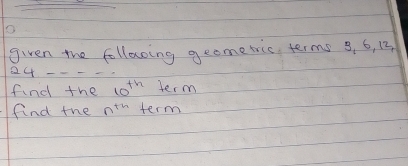 given the following geometric terms 3, 6, 12,
24 -----
find the 10th term
find the nth term